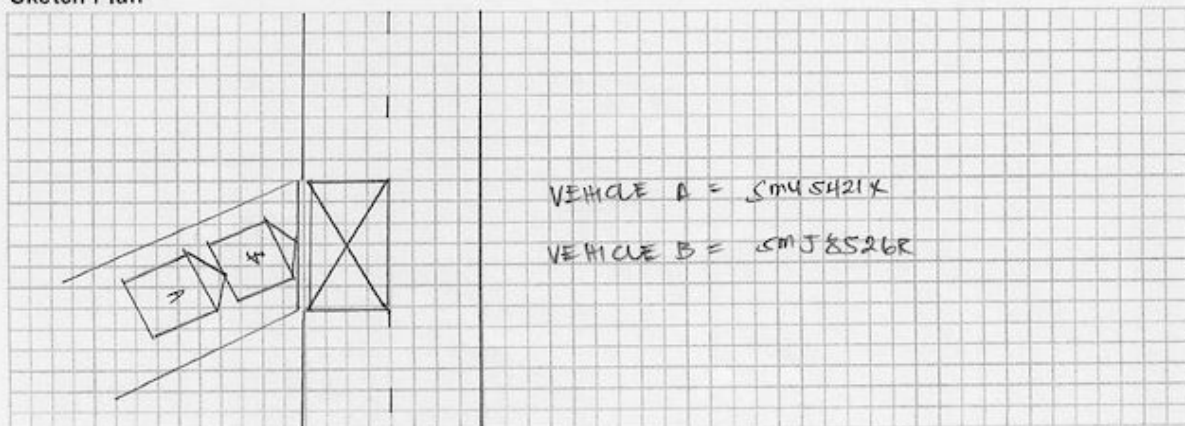 Sketch Plan
VEHICLE A = SMU 5421X
VEHICLE B = SMJ 8526R
B
A